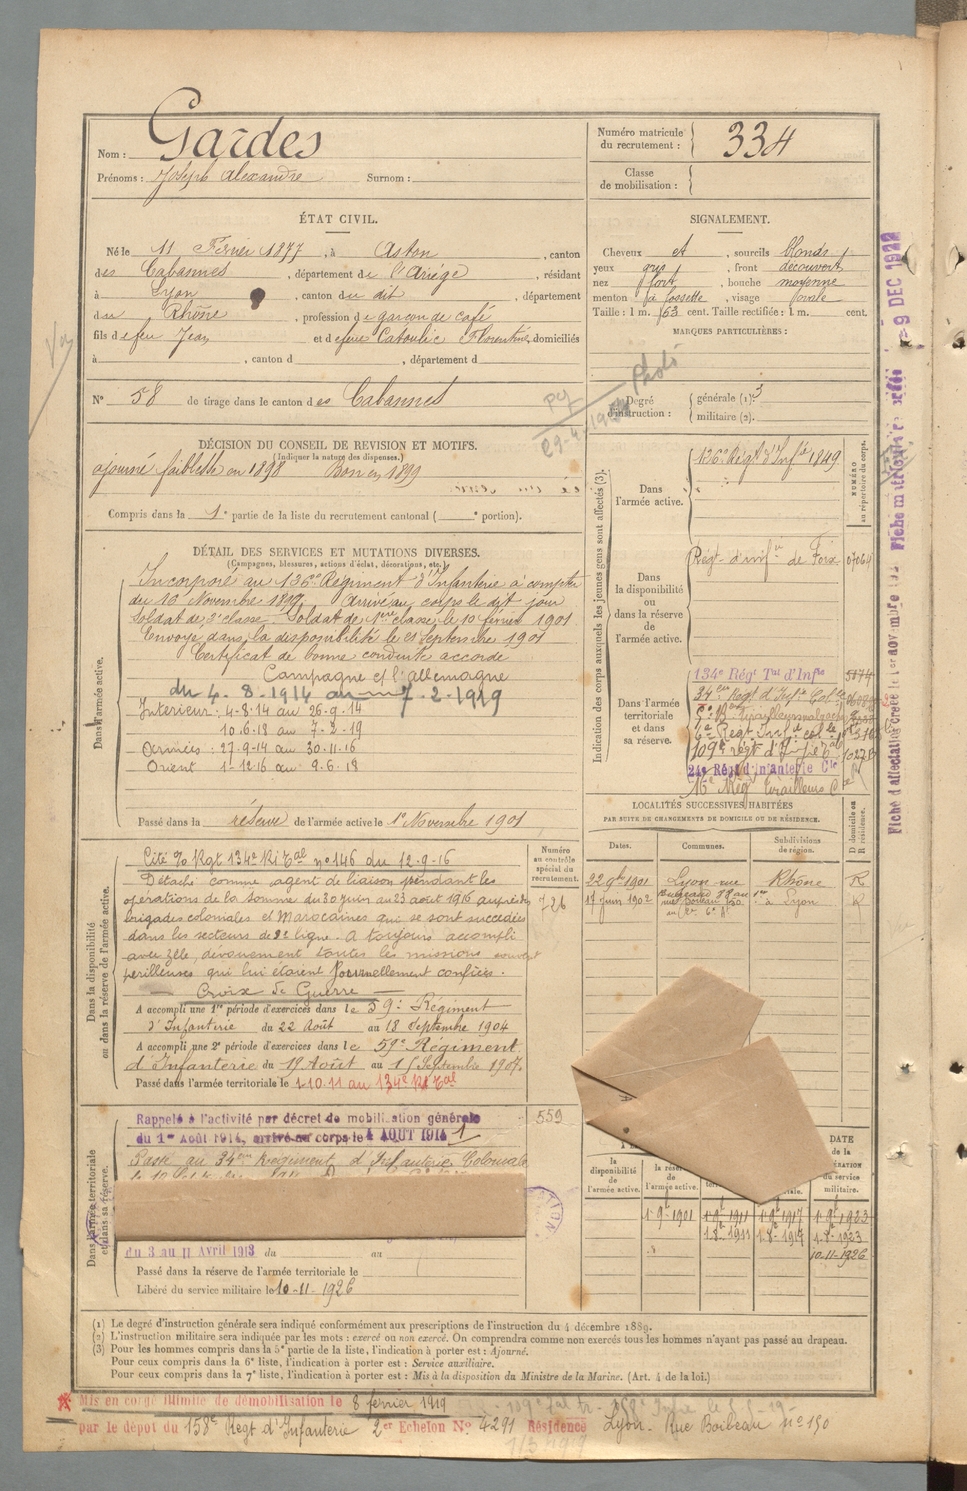 Nom : Gardes
Prénoms : Joseph Alexandre Surnom :
Numéro matricule
du recrutement : 334
Classe
de mobilisation :
ÉTAT CIVIL.
Né le 11 Février 1877, à Aston, canton
des Cabannes, département de l'Ariège, résidant
à Lyon, canton du dit, département
du Rhône, profession de garçon de café
fils de feu Jean et de feue Catoulic Florentine, domiciliés
à , canton d , département d
N° 58 de tirage dans le canton des Cabannes
SIGNALEMENT.
Cheveux et, sourcils blonds
yeux gris, front découvert
nez fort, bouche moyenne
menton à fossette, visage ovale
Taille : 1 m. 63 cent. Taille rectifiée : 1 m. cent.
MARQUES PARTICULIÈRES :
Photo
Degré
d'instruction :
générale (1). 3
militaire (2).
DÉCISION DU CONSEIL DE REVISION ET MOTIFS.
(Indiquer la nature des dispenses.)
ajourné faiblesse en 1898 Bon en 1899
Compris dans la 1e partie de la liste du recrutement cantonal ( e portion).
DÉTAIL DES SERVICES ET MUTATIONS DIVERSES.
(Campagnes, blessures, actions d'éclat, décorations, etc.)
Dans l'armée active.
Incorporé au 136e Régiment d'Infanterie à compter
du 16 Novembre 1899. Arrivé au corps le dit jour
Soldat de 2e classe. Soldat de 1ère classe le 10 février 1901
Envoyé dans la disponibilité le 21 Septembre 1901
Certificat de bonne conduite accordé
Campagne ct l'allemagne
du 4-8-1914 au 7-2-1919
Intérieur : 4-8-14 au 26-9-14
10.6-18 au 7-2-19
Armées : 27-9-14 au 30-11-16
Orient 1-12-16 au 9-6-18
Passé dans la réserve de l'armée active le 1er Novembre 1901
Indication des corps auxquels les jeunes gens sont affectés (3).
NUMÉRO
au répertoire du corps.
Dans
l'armée active.
136e Régt d'Infie 1849
Dans
la disponibilité
ou
dans la réserve
de
l'armée active.
Régt d'infie de Foix
Dans l'armée
territoriale
et dans
sa réserve.
134e Régt Tal d'Infie 5174
34e Régt d'Infie Col.le
109e régt d'Infie Tal
24e Régt d'Infanterie Cle
16e Rég Tirailleurs
Fiche d'affectation créée le
9 DEC 1922
LOCALITÉS SUCCESSIVES HABITÉES
PAR SUITE DE CHANGEMENTS DE DOMICILE OU DE RÉSIDENCE.
Dates. Communes. Subdivisions
de région.
D domicile ou
R résidence.
22 9bre 1901 Lyon rue Rhône R
17 Juin 1902 à Lyon R
Dans la disponibilité
ou dans la réserve de l'armée active.
Numéro
au contrôle
spécial du
recrutement.
726
Cité O. Rgt 134e RI Tal n° 146 du 12-9-16
Détaché comme agent de liaison pendant les
opérations de la Somme du 30 Juin au 23 août 1916 auprès des
brigades coloniales et Marocaines qui se sont succédées
dans les secteurs de 2e ligne. A toujours accompli
avec zèle, dévouement toutes les missions souvent
périlleuses qui lui étaient journellement confiées.
Croix de Guerre
A accompli une 1re période d'exercices dans le 59e Régiment
d'Infanterie du 22 Août au 18 Septembre 1904
A accompli une 2e période d'exercices dans le 59e Régiment
d'Infanterie du 19 Août au 15 Septembre 1907.
Passé dans l'armée territoriale le 1-10-11 au 134e RI Tal
Dans l'armée territoriale
et dans sa réserve.
559
Rappelé à l'activité par décret de mobilisation générale
du 1er Août 1914, arrivé au corps le 4 AOUT 1914
Passé au 34ème Régiment d'Infanterie Coloniale
du 3 au 11 Avril 1913 du au
Passé dans la réserve de l'armée territoriale le
Libéré du service militaire le 10-11-1926
la
disponibilité
de
l'armée active.
la réserve
de
l'armée active.
DATE
de la
du service
militaire.
1-9-1901 1-9-1911 1-9-1917 1-9-1923
1-8-1911 1-8-1917 1-8-1923
10-11-1926
(1) Le degré d'instruction générale sera indiqué conformément aux prescriptions de l'instruction du 4 décembre 1889.
(2) L'instruction militaire sera indiquée par les mots : exercé ou non exercé. On comprendra comme non exercés tous les hommes n'ayant pas passé au drapeau.
(3) Pour les hommes compris dans la 5e partie de la liste, l'indication à porter est : Ajourné.
Pour ceux compris dans la 6e liste, l'indication à porter est : Service auxiliaire.
Pour ceux compris dans la 7e liste, l'indication à porter est : Mis à la disposition du Ministre de la Marine. (Art. 4 de la loi.)
Mis en congé illimité de démobilisation le 8 février 1919
par le dépôt du 158e Régt d'Infanterie 2er Echelon N° 4291 Résidence Lyon. Rue Boileau n° 150